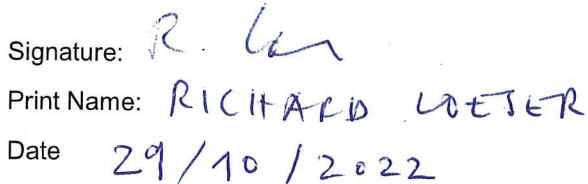 Signature: R.
Print Name: RICHARD LOESER
Date 29/10/2022